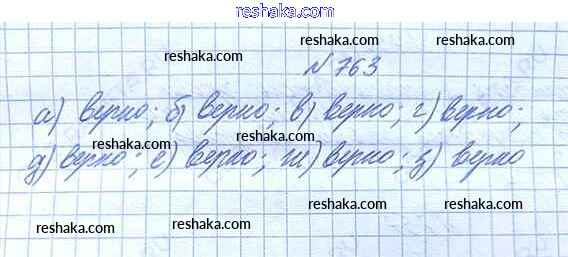 reshaka.com
reshaka.com reshaka.com
№ 763
reshaka.com reshaka.com reshaka.com
а) верно; б) верно; в) верно; г) верно;
reshaka.com reshaka.com
д) верно; е) верно; ж) верно; з) верно
reshaka.com reshaka.com reshaka.com
reshaka.com reshaka.com